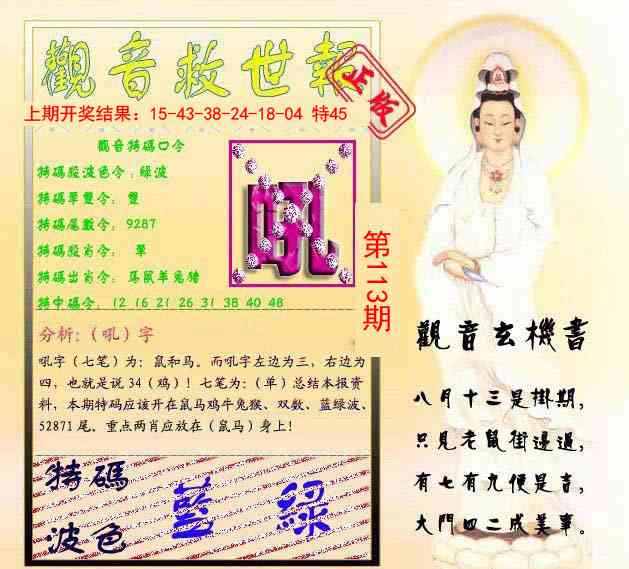 觀音救世報
正版
上期开奖结果：15-43-38-24-18-04 特45
觀音特碼口令
特碼段波色令：綠波
特碼單雙令： 雙
特碼尾數令： 9287
特碼段肖令： 單
特碼出肖令： 馬鼠羊兔豬
特中碼令： 12 16 21 26 31 38 40 48
吼
第113期
分析：（吼）字
吼字（七笔）为：鼠和马。而吼字左边为三，右边为
四，也就是说 34（鸡）！七笔为：（单）总结本报资
料，本期特码应该开在鼠马鸡牛兔猴、双数、蓝绿波、
52871 尾、重点两肖应放在（鼠马）身上！
特碼
波色
藍 綠
觀音玄機書
八月十三是掛期，
只見老鼠街邊過，
有七有九便是吉，
大門四二成美事。